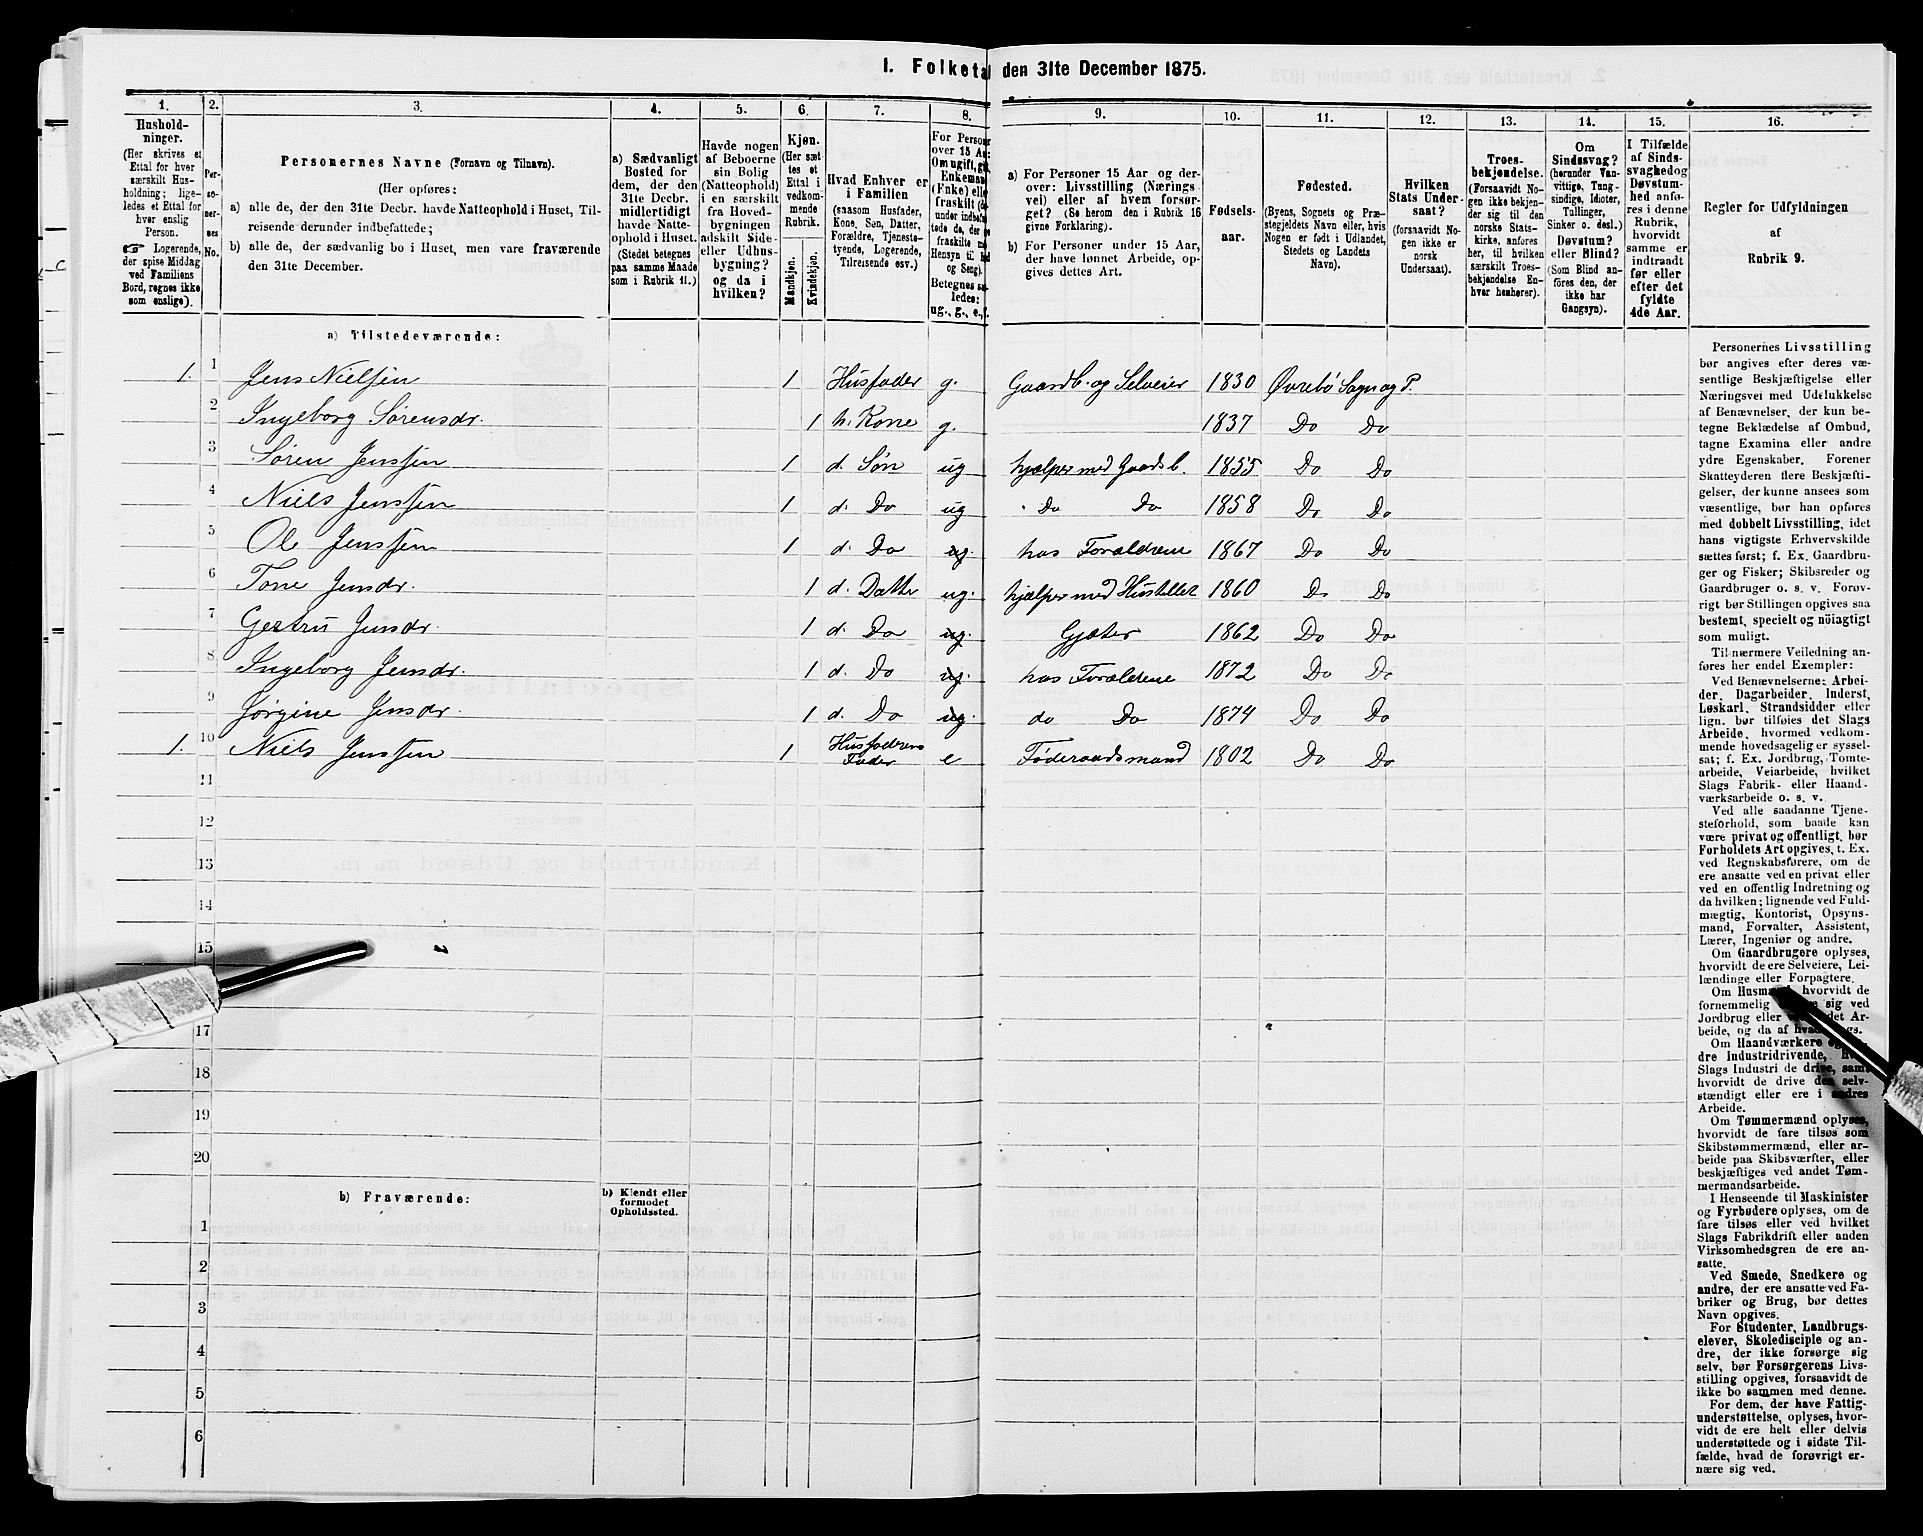 I. Folketal den 31te December 1875.
1. 2. 3. 4. 5. 6. 7. 8. 9. 10. 11. 12. 13. 14. 15. 16.
Hushold-
ninger.
(Her skrives et
Ettal for hver
særskilt Hus-
holdning; lige-
ledes et Ettal for
hver enslig
Person.
☞ Logerende,
der spise Middag
ved Familiens
Bord, regnes ikke
som enslige).
Per-
so-
ner-
nes
No.
Personernes Navne (Fornavn og Tilnavn).
(Her opføres:
a) alle de, der den 31te Decbr. havde Natteophold i Huset, Til-
reisende derunder indbefattede;
b) alle de, der sædvanlig bo i Huset, men vare fraværende
den 31te December.
a) Sædvanligt
Bosted for
dem, der den
31te Decbr.
midlertidigt
havde Natte-
ophold i Huset.
(Stedet betegnes
paa samme Maade
som i Rubrik 11.)
Havde nogen
af Beboerne
sin Bolig
(Natteophold)
i en særskilt
fra Hoved-
bygningen
adskilt Side-
eller Udhus-
bygning?
og da i
hvilken?
Kjøn.
(Her sæt-
tes et
Ettal i
vedkom-
mende
Rubrik.
Mandkjøn.
Kvindekjøn.
Hvad Enhver er
i Familien
(saasom Husfader,
Kone, Søn, Datter,
Forældre, Tjeneste-
tyende, Logerende,
Tilreisende osv.)
For Person
over 15 Aa
Om ugift, gif
Enkeman
(Fnke) elle
fraskilt (d
under indbefa
tede de, der e
fraskilte m
Hensyn til
og Seng).
Betegnes sa
ledes:
ug., g., e., f.
a) For Personer 15 Aar og der-
over: Livsstilling (Nærings-
vei) eller af hvem forsør-
get? (Se herom den i Rubrik 16
givne Forklaring).
b) For Personer under 15 Aar,
der have lønnet Arbeide, op-
gives dettes Art.
Fødsels-
aar.
Fødested.
(Byens, Sognets og Præ-
stegjeldets Navn eller, hvis
Nogen er født i Udlandet,
Stedets og Landets
Navn).
Hvilken
Stats Under-
saat?
(forsaavidt No-
gen ikke er
norsk
Undersaat).
Troes-
bekjendelse.
(Forsaavidt No-
gen ikke bekjen-
der sig til den
norske Stats-
kirke, anføres
her, til hvilken
særskilt Troes-
bekjendelse En-
hver henhører).
Om
Sindssvag?
(herunder Van-
vittige, Tung-
sindige, Idioter,
Tullinger,
Sinker o. desl.)
Døvstum?
eller Blind?
(Som Blind an-
føres den, der
ikke har
Gangsyn).
I Tilfælde
af Sinds-
svaghed og
Døvstum-
hed anfø-
res i denne
Rubrik,
hvorvidt
samme er
indtraadt
før eller
efter det
fyldte
4de Aar.
Regler for Udfyldningen
af
Rubrik 9.
a) Tilstedeværende:
1. 1 Jens Nielsen 1 Husfader g. Gaardb. og Selveier 1830 Øvrebø Sogn og P.
2 Ingeborg Sørensdr. 1 h. Kone g. 1837 Do Do
3 Søren Jenssen 1 d. Søn ug hjælper med Gaardsb. 1855 Do Do
4 Niels Jenssen 1 d. Do ug Do Do 1858 Do Do
5 Ole Jenssen 1 d. Do ug. hos Forældrene 1867 Do Do
6 Tone Jensdr. 1 d. Datter ug. hjælper med Husstellet 1860 Do Do
7 Gertru Jensdr. 1 d. Do ug. Gjæter 1862 Do Do
8 Ingeborg Jensdr. 1 d. Do ug. hos Forældrene 1872 Do Do
9 Jørgine Jensdr. 1 d. Do ug. do Do 1874 Do Do
1. 10 Niels Jenssen 1 Husfaderens Fader e Føderaadsmand 1802 Do Do
11
12
13
14
15
17
18
19
20
b) Fraværende:
b) Kjendt eller
formodet
Opholdssted.
1
2
3
4
5
6
Personernes Livsstilling
bør angives efter deres væ-
sentlige Beskjæftigelse eller
Næringsvei med Udelukkelse
af Benævnelser, der kun be-
tegne Beklædelse af Ombud,
tagne Examina eller andre
ydre Egenskaber. Forener
Skatteyderen flere Beskjæfti-
gelser, der kunne ansees som
væsentlige, bør han opføres
med dobbelt Livsstilling, idet
hans vigtigste Erhvervskilde
sættes først; f. Ex. Gaardbru-
ger og Fisker; Skibsreder og
Gaardbruger o. s. v. Forøv-
rigt bør Stillingen opgives saa
bestemt, specielt og nöiagtigt
som muligt.
Til nærmere Veiledning an-
føres her endel Exempler:
Ved Benævnelserne: Arbei-
der, Dagarbeider, Inderst,
Løskarl, Strandsidder eller
lign. bør tilføies det Slags
Arbeide, hvormed vedkom-
mende hovedsagelig er syssel-
sat; f. Ex. Jordbrug, Tomte-
arbeide, Veiarbeide, hvilket
Slags Fabrik- eller Haand-
værksarbeide o. s. v.
Ved alle saadanne Tjene-
steforhold, som baade kan
være privat og offentligt, bør
Forholdets Art opgives, t. Ex.
ved Regnskabsførere, om de
ere ansatte ved en privat eller
ved en offentlig Indretning og
da hvilken; lignende ved Fuld-
mægtig, Kontorist, Opsyns-
mand, Forvalter, Assistent,
Lærer, Ingeniør og andre.
Om Gaardbrugere oplyses,
hvorvidt de ere Selveiere, Lei-
lændinge eller Forpagtere.
Om Husmænd, hvorvidt de
fornemmelig sig ved
Jordbrug eller det Ar-
beide, og da af hvad gs.
Om Haandværkere og
dre Industridrivende,
Slags Industri de drive, samt
hvorvidt de drive den selv-
stændigt eller ere i andres
Arbeide.
Om Tømmermænd oplyses,
hvorvidt de fare tilsøs som
Skibstømmermænd, eller ar-
beide paa Skibsværfter, eller
beskjæftiges ved andet Tøm-
mermandsarbeide.
I Henseende til Maskinister
og Fyrbødere oplyses, om de
fare tilsøs eller ved hvilket
Slags Fabrikdrift eller anden
Virksomhedsgren de ere an-
satte.
Ved Smede, Snedkere og
andre, der ere ansatte ved Fa-
briker og Brug, bør dettes
Navn opgives.
For Studenter, Landbrugs-
elever, Skoledisciple og an-
dre, der ikke forsørge sig
selv, bør Forsørgerens Livs-
stilling opgives, forsaavidt de
ikke bo sammen med denne.
For dem, der have Fattig-
understøttelse, oplyses, hvor-
vidt de ere helt eller delvis
understøttede og i sidste Til-
fælde, hvad de forøvrigt er-
nære sig ved.